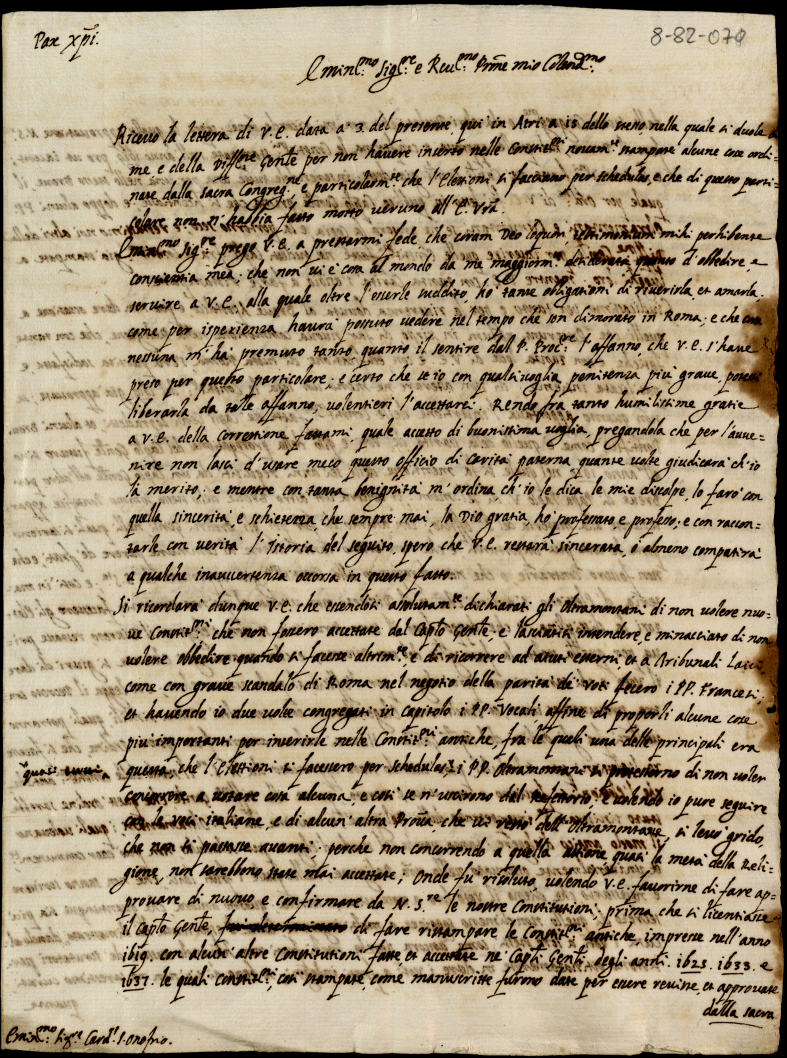 Pax xp̄i.
8-82-070
Emin.mo Sig.re e Reu.mo Prñe mio Colend.mo
Riceuo la lettera di V.E. data a 3. del presente, qui in Atri a 15 dello stesso, nella quale si duole di
me e della Diff.ne Gen̄le per non hauere inserto nelle Constit.ni nouam.te stampate alcune cose ordi=
nate dalla sacra Congreg.ne e particolarm.te che l'Elettioni si facciano per schedulas, e che di questo parti=
colare non si habbia fatto motto ueruno all'E. Vrā.
Emin.mo Sig.re prego V.E. a prestarmi fede che coram Deo loquor, testimonium mihi perhibente
conscientia mea; che non ui è cosa al mondo da me maggiorm.te desiderata quanto d'obbedire, e
seruire a V.E. alla quale oltre l'esserle suddito, ho tante obligationi di riuerirla, et amarla.
come per isperienza haurà possuto uedere nel tempo che son dimorato in Roma; e che cosa
nessuna m'ha premuto tanto quanto il sentire dal P. Proc.re l'affanno, che V.E. s'haue
preso per questo particolare; e certo che se io con qualsiuoglia penitenza più graue, potessi
liberarla da tale affanno, uolentieri l'accettarei. Rendo fra tanto humilissime gratie
a V.E. della correttione fattami, quale accetto di buonissima uoglia, pregandola che per l'auue=
nire non lasci d'usare meco questo officio di carità paterna quante uolte giudicarà ch'io
la merito; e mentre con tanta benignità m'ordina ch'io le dica le mie discolpe, lo farò con
quella sincerità, e schiettezza, che sempre mai, la Dio gratia, ho professato, e professo; e con raccon=
tarle con uerità l'istoria del seguito, spero che V.E. restarà sincerata, ò almeno compatirà
a qualche inauuertenza occorsa in questo fatto.
Si ricordarà dunque V.E. che essendosi assolutam.te dichiarati gli Oltramontani di non uolere nuo=
ue Constit.ni che non fossero accettate dal Capto Gen̄le; e lasciatisi intendere, e minacciato di non
uolere obbedire quando si facesse altrim.te, e di ricorrere ad aiuti esterni, et a Tribunali Laici
come con graue scandalo di Roma nel negotio della parità de' voti fecero i PP. Francesi;
et hauendo io due uolte congregati in Capitolo i PP. Vocali affine di proporli alcune cose
più importanti per inserirle nelle Constit.ni antiche, fra le quali una delle principali era
questa, che l'Elettioni si facessero per schedulas; i PP. Oltramontani si protestorno di non uoler
concorrere a uotare cosa alcuna, e così se n'uscirono dal Refettorio; e uolendo io pure seguire
con le voci italiane, e di alcun'altra Prou.a che ui restò dell'Oltramontane, si leuò grido,
che non si passasse auanti; perche non concorrendo a quella attione quasi la metà della Reli=
gione, non sarebbono state mai accettate; Onde fù risoluto, uolendo V.E. fauorirne di fare ap=
prouare di nuouo, e confirmare da N.S.re le nostre Constitutioni, prima che si licentiasse
il Capto Gen̄le, di fare ristampare le Constit.ni antiche, impresse nell'anno
1619. con alcun'altre Constitutioni fatte, et accettate ne' Capti Gen̄li degli anni. 1623. 1633. e
1637. le quali constit.ni, così stampate, come manuscritte furono date per essere reuiste, et approuate
dalla sacra
Emin.mo Sig.re Card.l S. Onofrio.